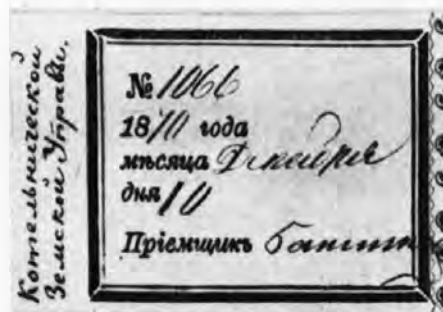 Котельнической
Земской Управы.
№ 1066
1870 года
мѣсяца Декабря
дня 10
Пріемщикъ